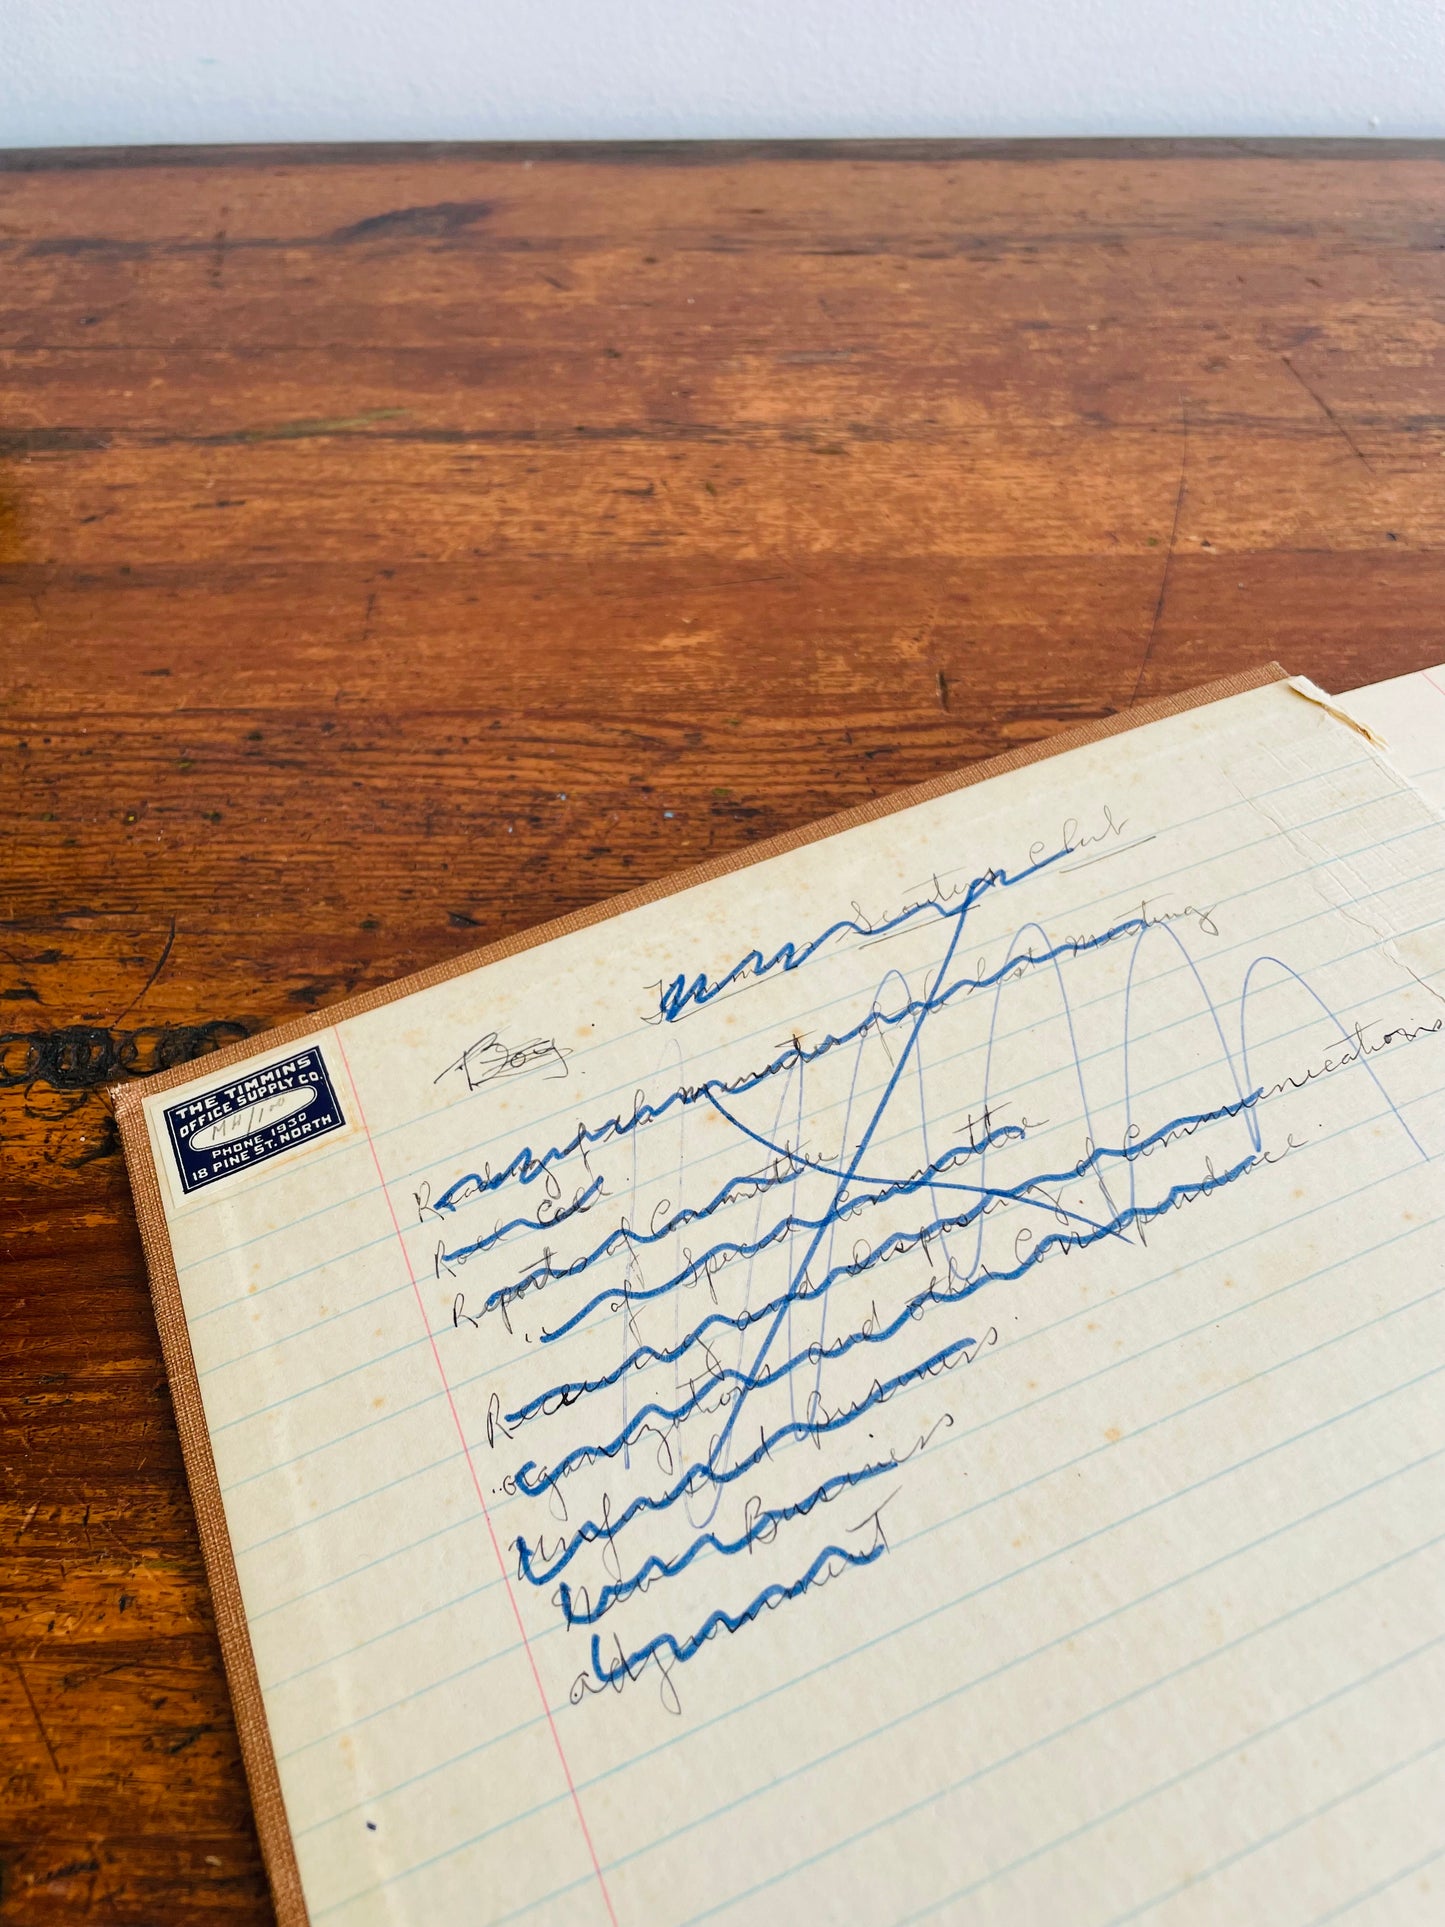 Timmins Scouters Club
Boy
THE TIMMINS
OFFICE SUPPLY CO.
PHONE 1930
18 PINE ST. NORTH
Reading of the minutes of the last meeting
Roll Call.
Reports of Committee.
" of Special Committee
Receiving and Disposing of Communications
organizations and other Correspondence.
Unfinished Business.
New Business
adjournment